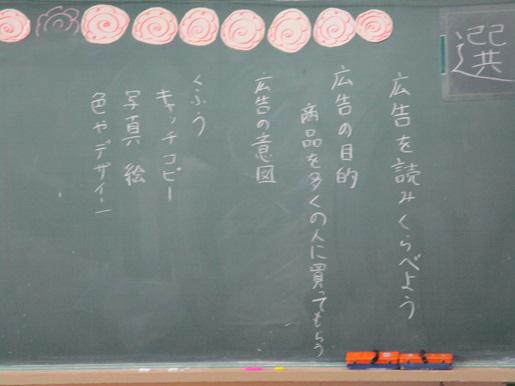 選
広告を読みくらべよう
広告の目的
商品を多くの人に買ってもらう
広告の意図
くふう
キャッチコピー
写真 絵
色やデザイン